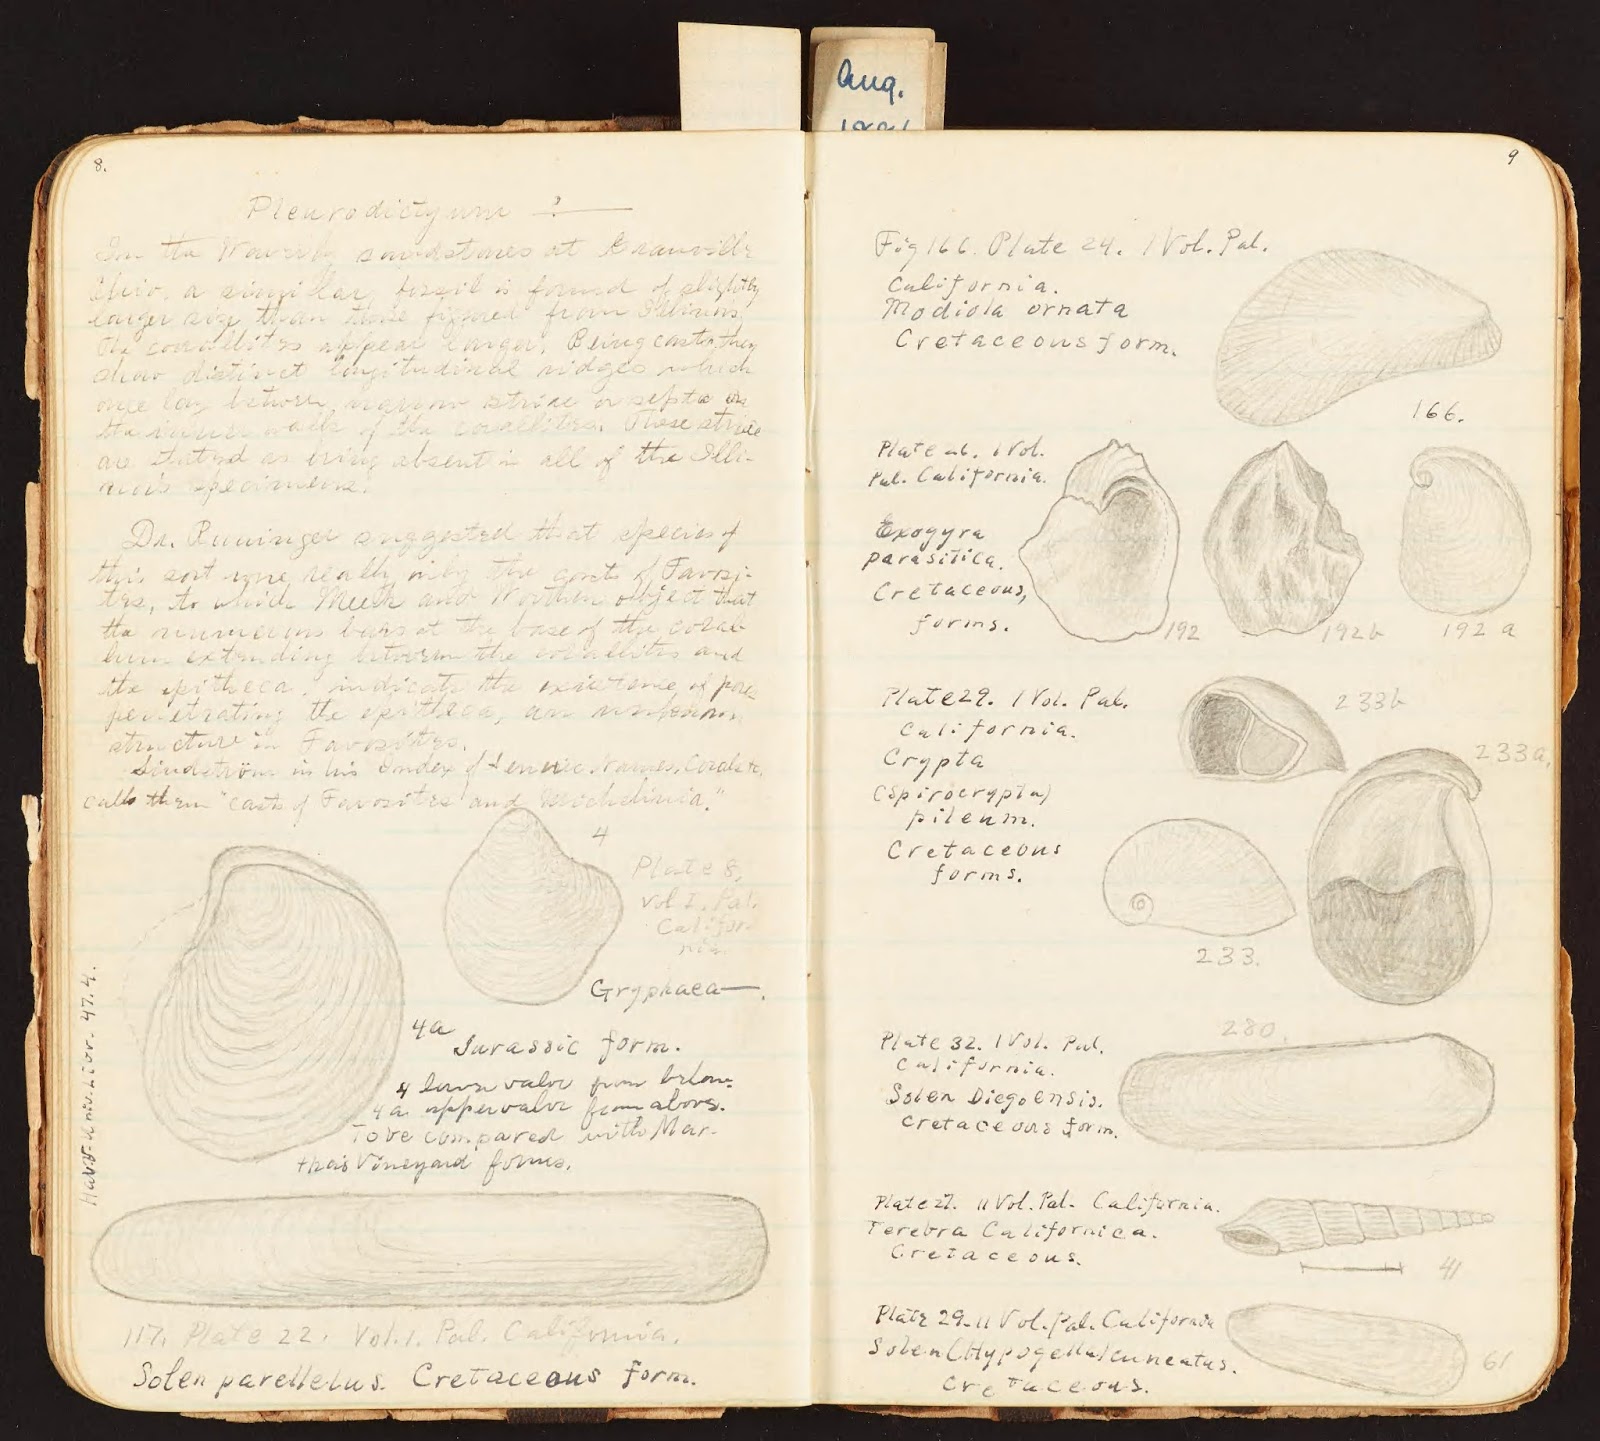 Aug.
8.
Pleurodictyum ?
In the Waverly sandstones at Granville
Ohio, a similar fossil is found of slightly
larger size than those figured from Illinois.
The corallites appear larger. Being casts, they
show distinct longitudinal ridges which
once lay between narrow striae or septa on
the inner walls of the corallites. These striae
are stated as being absent in all of the Illi-
nois specimens.
Dr. Rominger suggested that species of
this sort were really only the casts of Favosi-
tes, to which Meek and Worthen object that
the numerous bars at the base of the coral-
lum extending between the corallites and
the epitheca, indicate the existence of pores
penetrating the epitheca, an unknown
structure in Favosites.
Lindström in his Index of Names, Corals
calls them "casts of Favosites and Michelinia."
4
Plate 8,
vol I. Pal.
Califor
nia.
Gryphaea
4a
Jurassic form.
4 lower valve from below.
4a. uppervalve from above.
To be compared with Mar-
thas Vineyard forms.
Harv. Univ. Libr. 47.4.
117. Plate 22. Vol. 1. Pal. California.
Solen parellelus. Cretaceous form.
9
Fig 166. Plate 24. 1 Vol. Pal.
California.
Modiola ornata
Cretaceous form.
166.
Plate 26. 1 Vol.
Pal. California.
Exogyra
parasitica.
Cretaceous,
forms.
192
192b
192 a
Plate 29. 1 Vol. Pal.
California.
Crypta
(Spirocrypta)
pileum.
Cretaceous
forms.
233b
233a.
233.
280.
Plate 32. 1 Vol. Pal.
California.
Solen Diegoensis.
Cretaceous form.
Plate 27. 11 Vol. Pal. California.
Terebra Californica.
Cretaceous.
41
Plate 29. 11 Vol. Pal. California
Solen (Hypogella) cuneatus.
Cretaceous.
61